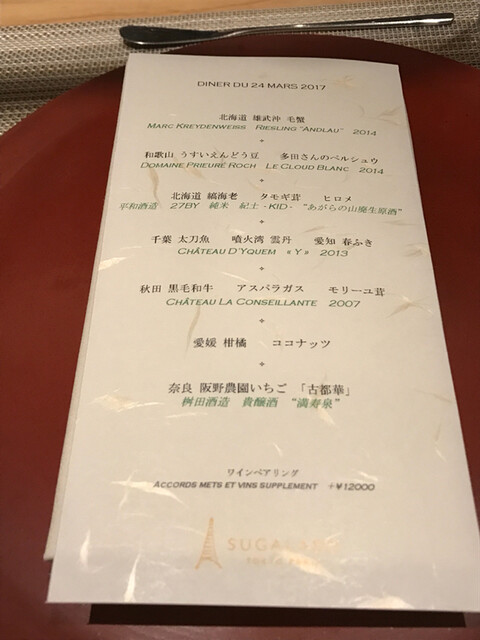 DINER DU 24 MARS 2017
北海道 雄武沖 毛蟹
MARC KREYDENWEISS RIESLING "ANDLAU" 2014
和歌山 うすいえんどう豆 多田さんのペルシュウ
DOMAINE PRIEURÉ ROCH LE CLOUD BLANC 2014
北海道 縞海老 タモギ茸 ヒロメ
平和酒造 27BY 純米 紀土 - KID - "あがらの山廃生原酒"
千葉 太刀魚 噴火湾 雲丹 愛知 春ふき
CHÂTEAU D'YQUEM « Y » 2013
秋田 黒毛和牛 アスパラガス モリーユ茸
CHÂTEAU LA CONSEILLANTE 2007
愛媛 柑橘 ココナッツ
奈良 阪野農園いちご 「古都華」
桝田酒造 貴醸酒 "満寿泉"
ワインペアリング
ACCORDS METS ET VINS SUPPLEMENT +¥12000